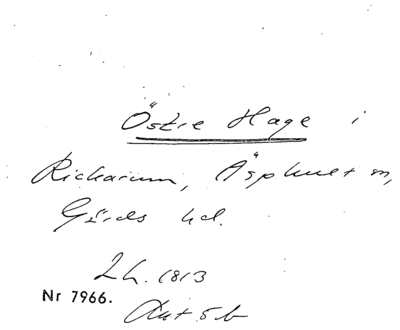 Östre Hage i
Rickarum, Äsphult sn,
Gärds hd.
Lh. 1813
Nr 7966.
Akt 5b